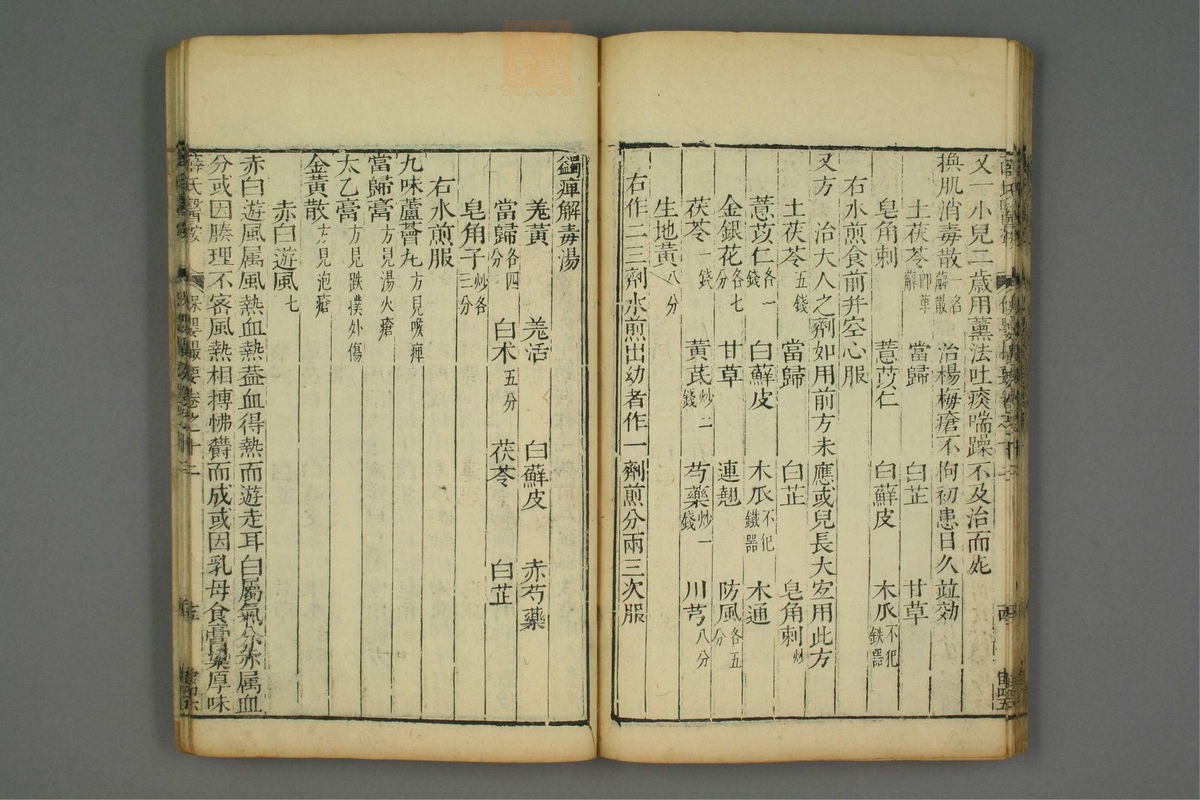 又一小兒二歲用薰法吐痰喘躁不及治而死
換肌消毒散一名蘚散 治楊梅瘡不拘初患日久並効
土茯苓即萆薢 當歸 白芷 甘草
皂角刺 薏苡仁 白蘚皮 木瓜不犯鉄器
右水煎食前并空心服
又方 治大人之劑如用前方未應或兒長大宐用此方
土茯苓五錢 當歸 白芷 皂角刺炒
薏苡仁各一錢 白蘚皮 木瓜不犯鐵器 木通
金銀花各七分 甘草 連翹 防風各五分
茯苓一錢 黃芪炒二錢 芍藥炒一錢 川芎八分
生地黃八分
右作二三劑水煎出幼者作一劑煎分兩三次服
蠲痺解毒湯
羗黃 羗活 白蘚皮 赤芍藥
當歸各四分 白术五分 茯苓 白芷
皂角子炒各三分
右水煎服
九味蘆薈丸方見喉痺
當歸膏方見湯火瘡
太乙膏方見跌撲外傷
金黃散方見泡瘡
赤白遊風七
赤白遊風属風熱血熱葢血得熱而遊走耳白屬氣分赤属血
分或因腠理不宻風熱相搏怫欝而成或因乳母食膏粱厚味
薛氏醫案
保嬰撮要卷之十二